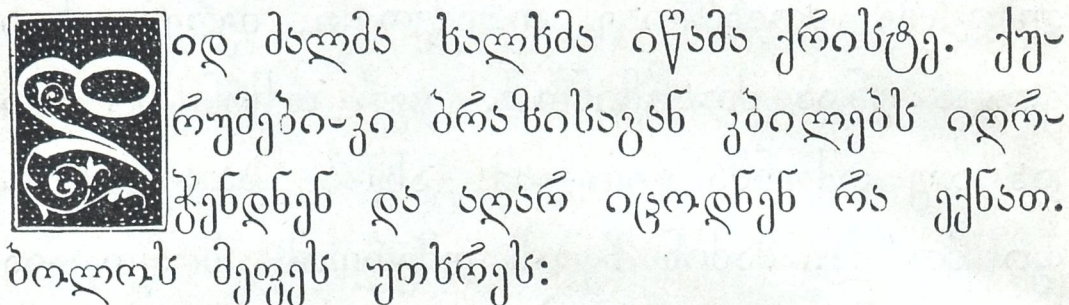 დიდ ძალმა ხალხმა იწამა ქრისტე. ქუ-
რუმები-კი ბრაზისაგან კბილებს იღრ-
ჭენდნენ და აღარ იცოდნენ რა ექნათ.
ბოლოს მეფეს უთხრეს: